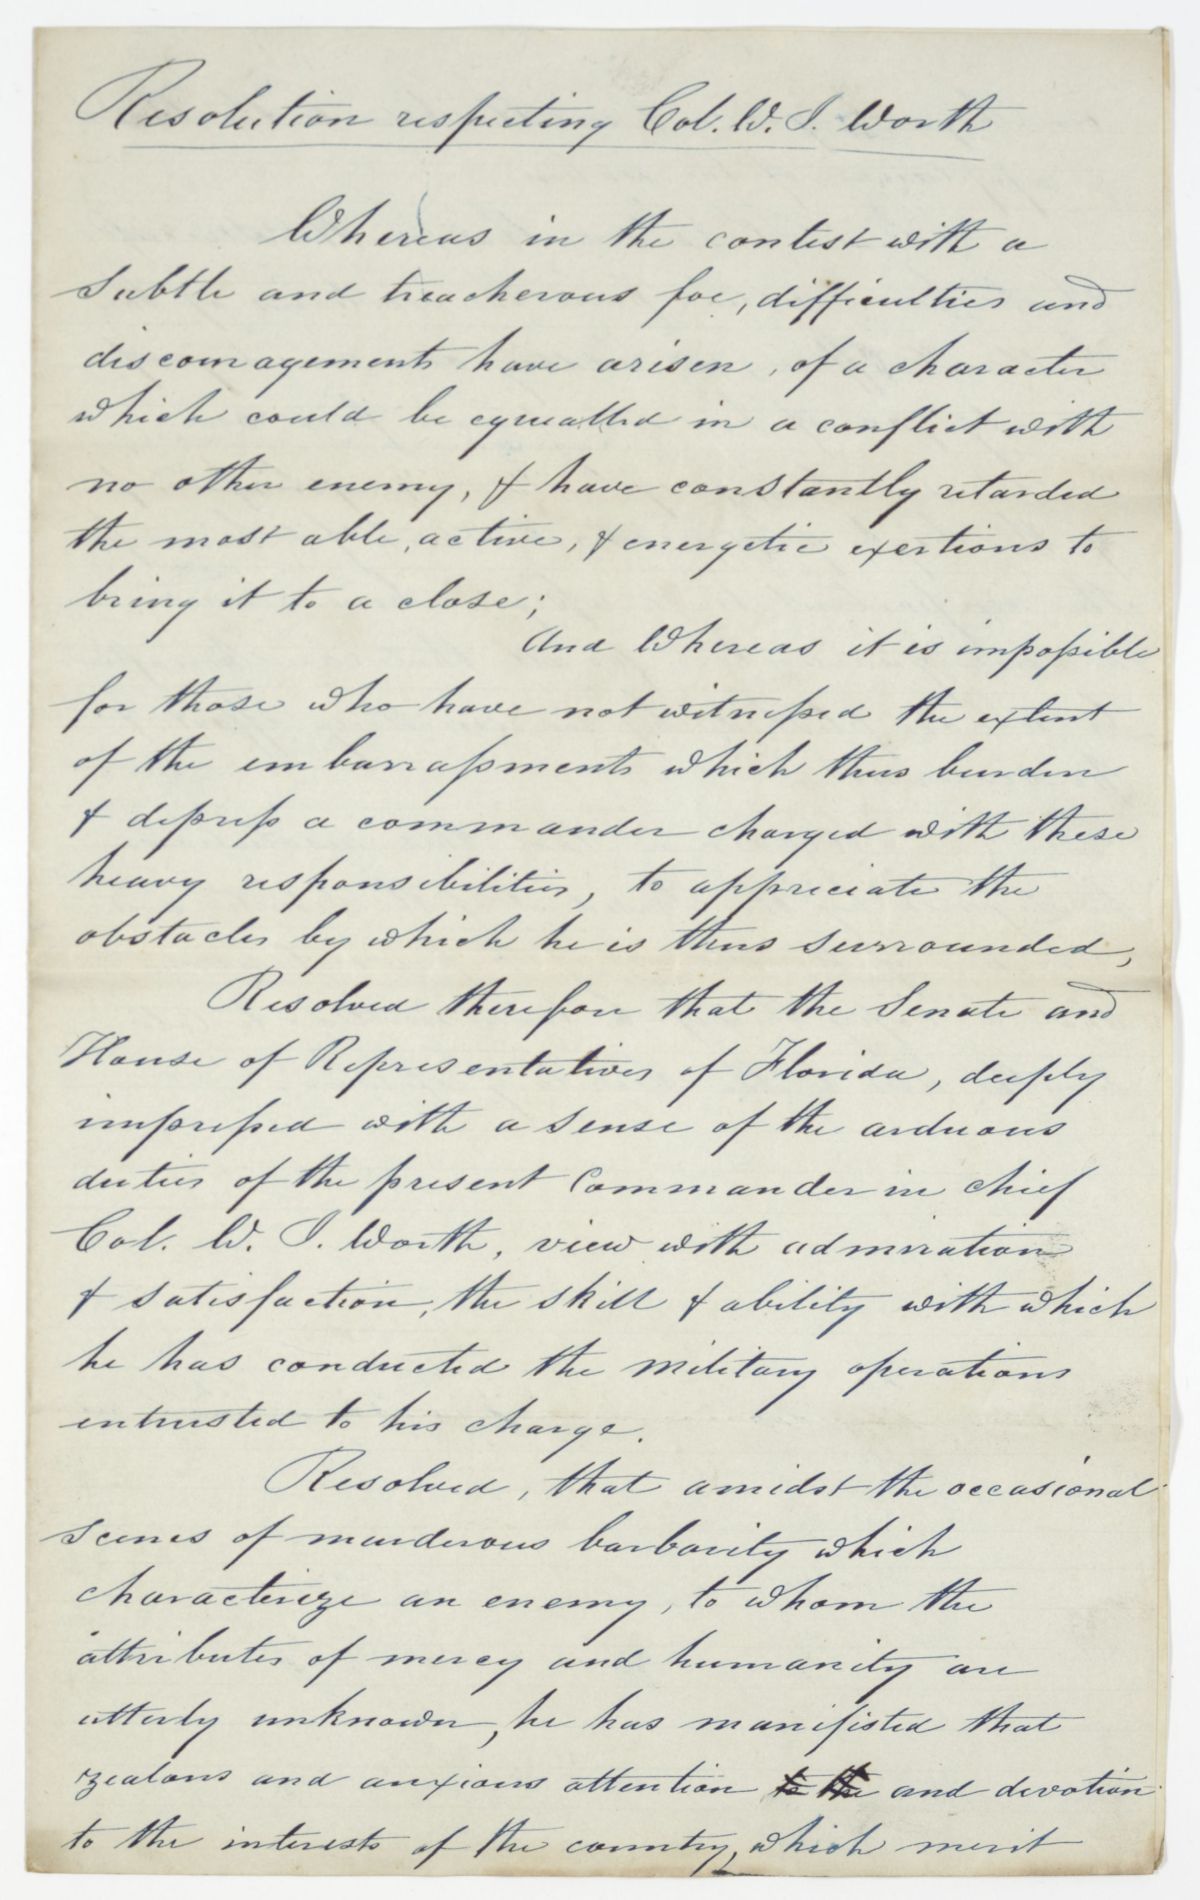 Resolution respecting Col. W. J. Worth
Whereas in the contest with a
subtle and treacherous foe, difficulties and
discouragements have arisen, of a character
which could be equalled in a conflict with
no other enemy, & have constantly retarded
the most able, active, & energetic exertions to
bring it to a close;
And Whereas it is impossible
for those who have not witnessed the extent
of the embarrassments which thus burden
& depress a commander charged with these
heavy responsibilities, to appreciate the
obstacles by which he is thus surrounded,
Resolved therefore that the Senate and
House of Representatives of Florida, deeply
impressed with a sense of the arduous
duties of the present Commander in chief
Col. W. J. Worth, view with admiration
& satisfaction, the skill & ability with which
he has conducted the military operations
entrusted to his charge.
Resolved, that amidst the occasional
scenes of murderous barbarity which
characterize an enemy, to whom the
attributes of mercy and humanity are
utterly unknown, he has manifested that
zealous and anxious attention to the and devotion
to the interests of the country, which merit